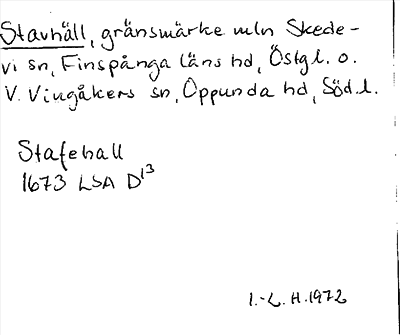 Stavhäll, gränsmärke mln Skede-
vi sn, Finspånga läns hd, Östgl. o.
V. Vingåkers sn, Oppunda hd, Södl.
Stafehall
1673 LSA D¹³
I.-L. H. 1972